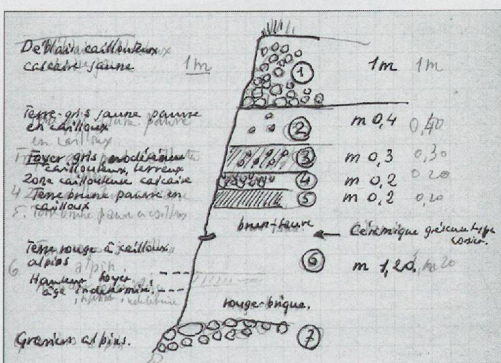 Deblais caillouteux
calcaire jaune
1 m
1
1 m
1 m
Terre gris jaune pauvre
en cailloux
2
m 0,4
0,40
Foyer gris
caillouteux, terreux
3
m 0,3
0,30
Zone caillouteuse calcaire
4
m 0,2
0,20
Terre brune pauvre en
cailloux
5
m 0,2
0,20
brun-
Céramique type
Terre rouge à cailloux
alpins
6
m 1,20
Hauteur foyer
âge indéterminé
rouge-brique.
Graviers alpins.
7